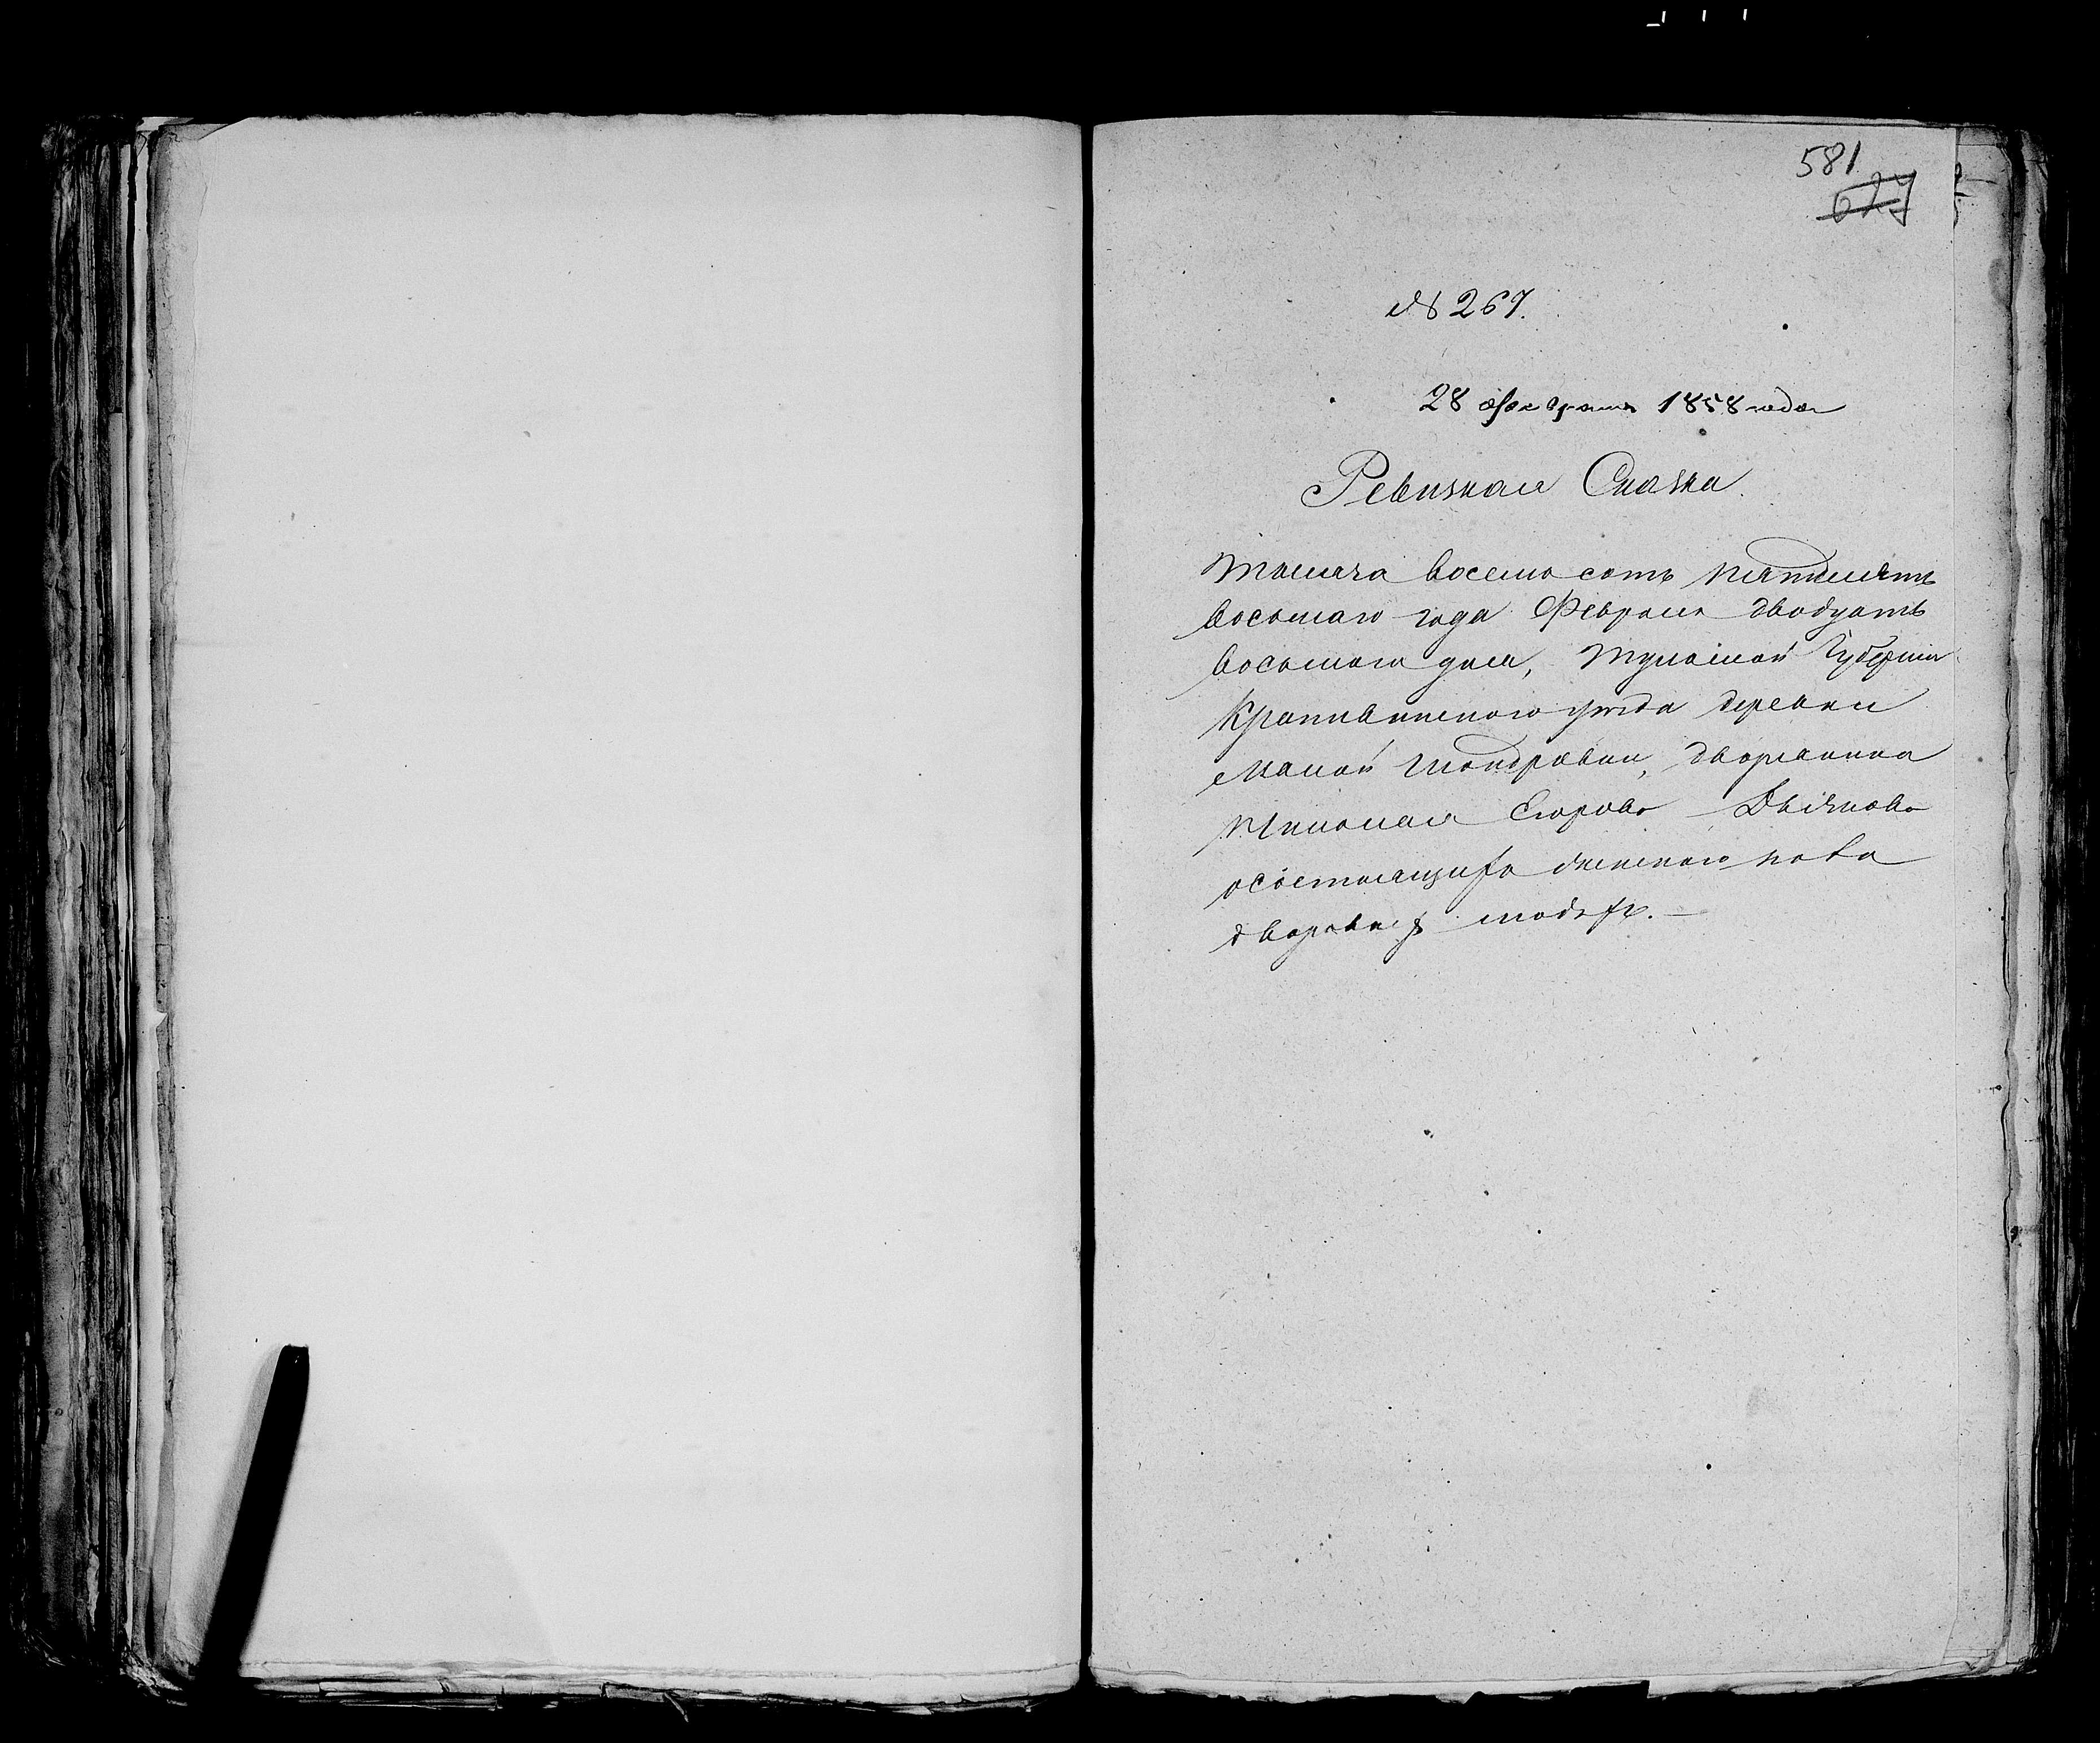 581
627
№ 267.
28 февраля 1858 года
Ревизкая Сказка.
Тысяча восемь сотъ пятдесятъ
восьмаго года Февраля двадцать
восьмаго дня, Тульской Губерніи
Крапивинскаго уѣзда деревни
Малой дворянина
Николая Егорова
о состоящихъ женскаго пола
дворовыхъ людяхъ.